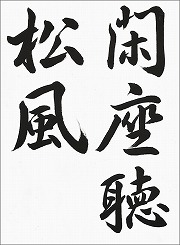 閑座聴
松風